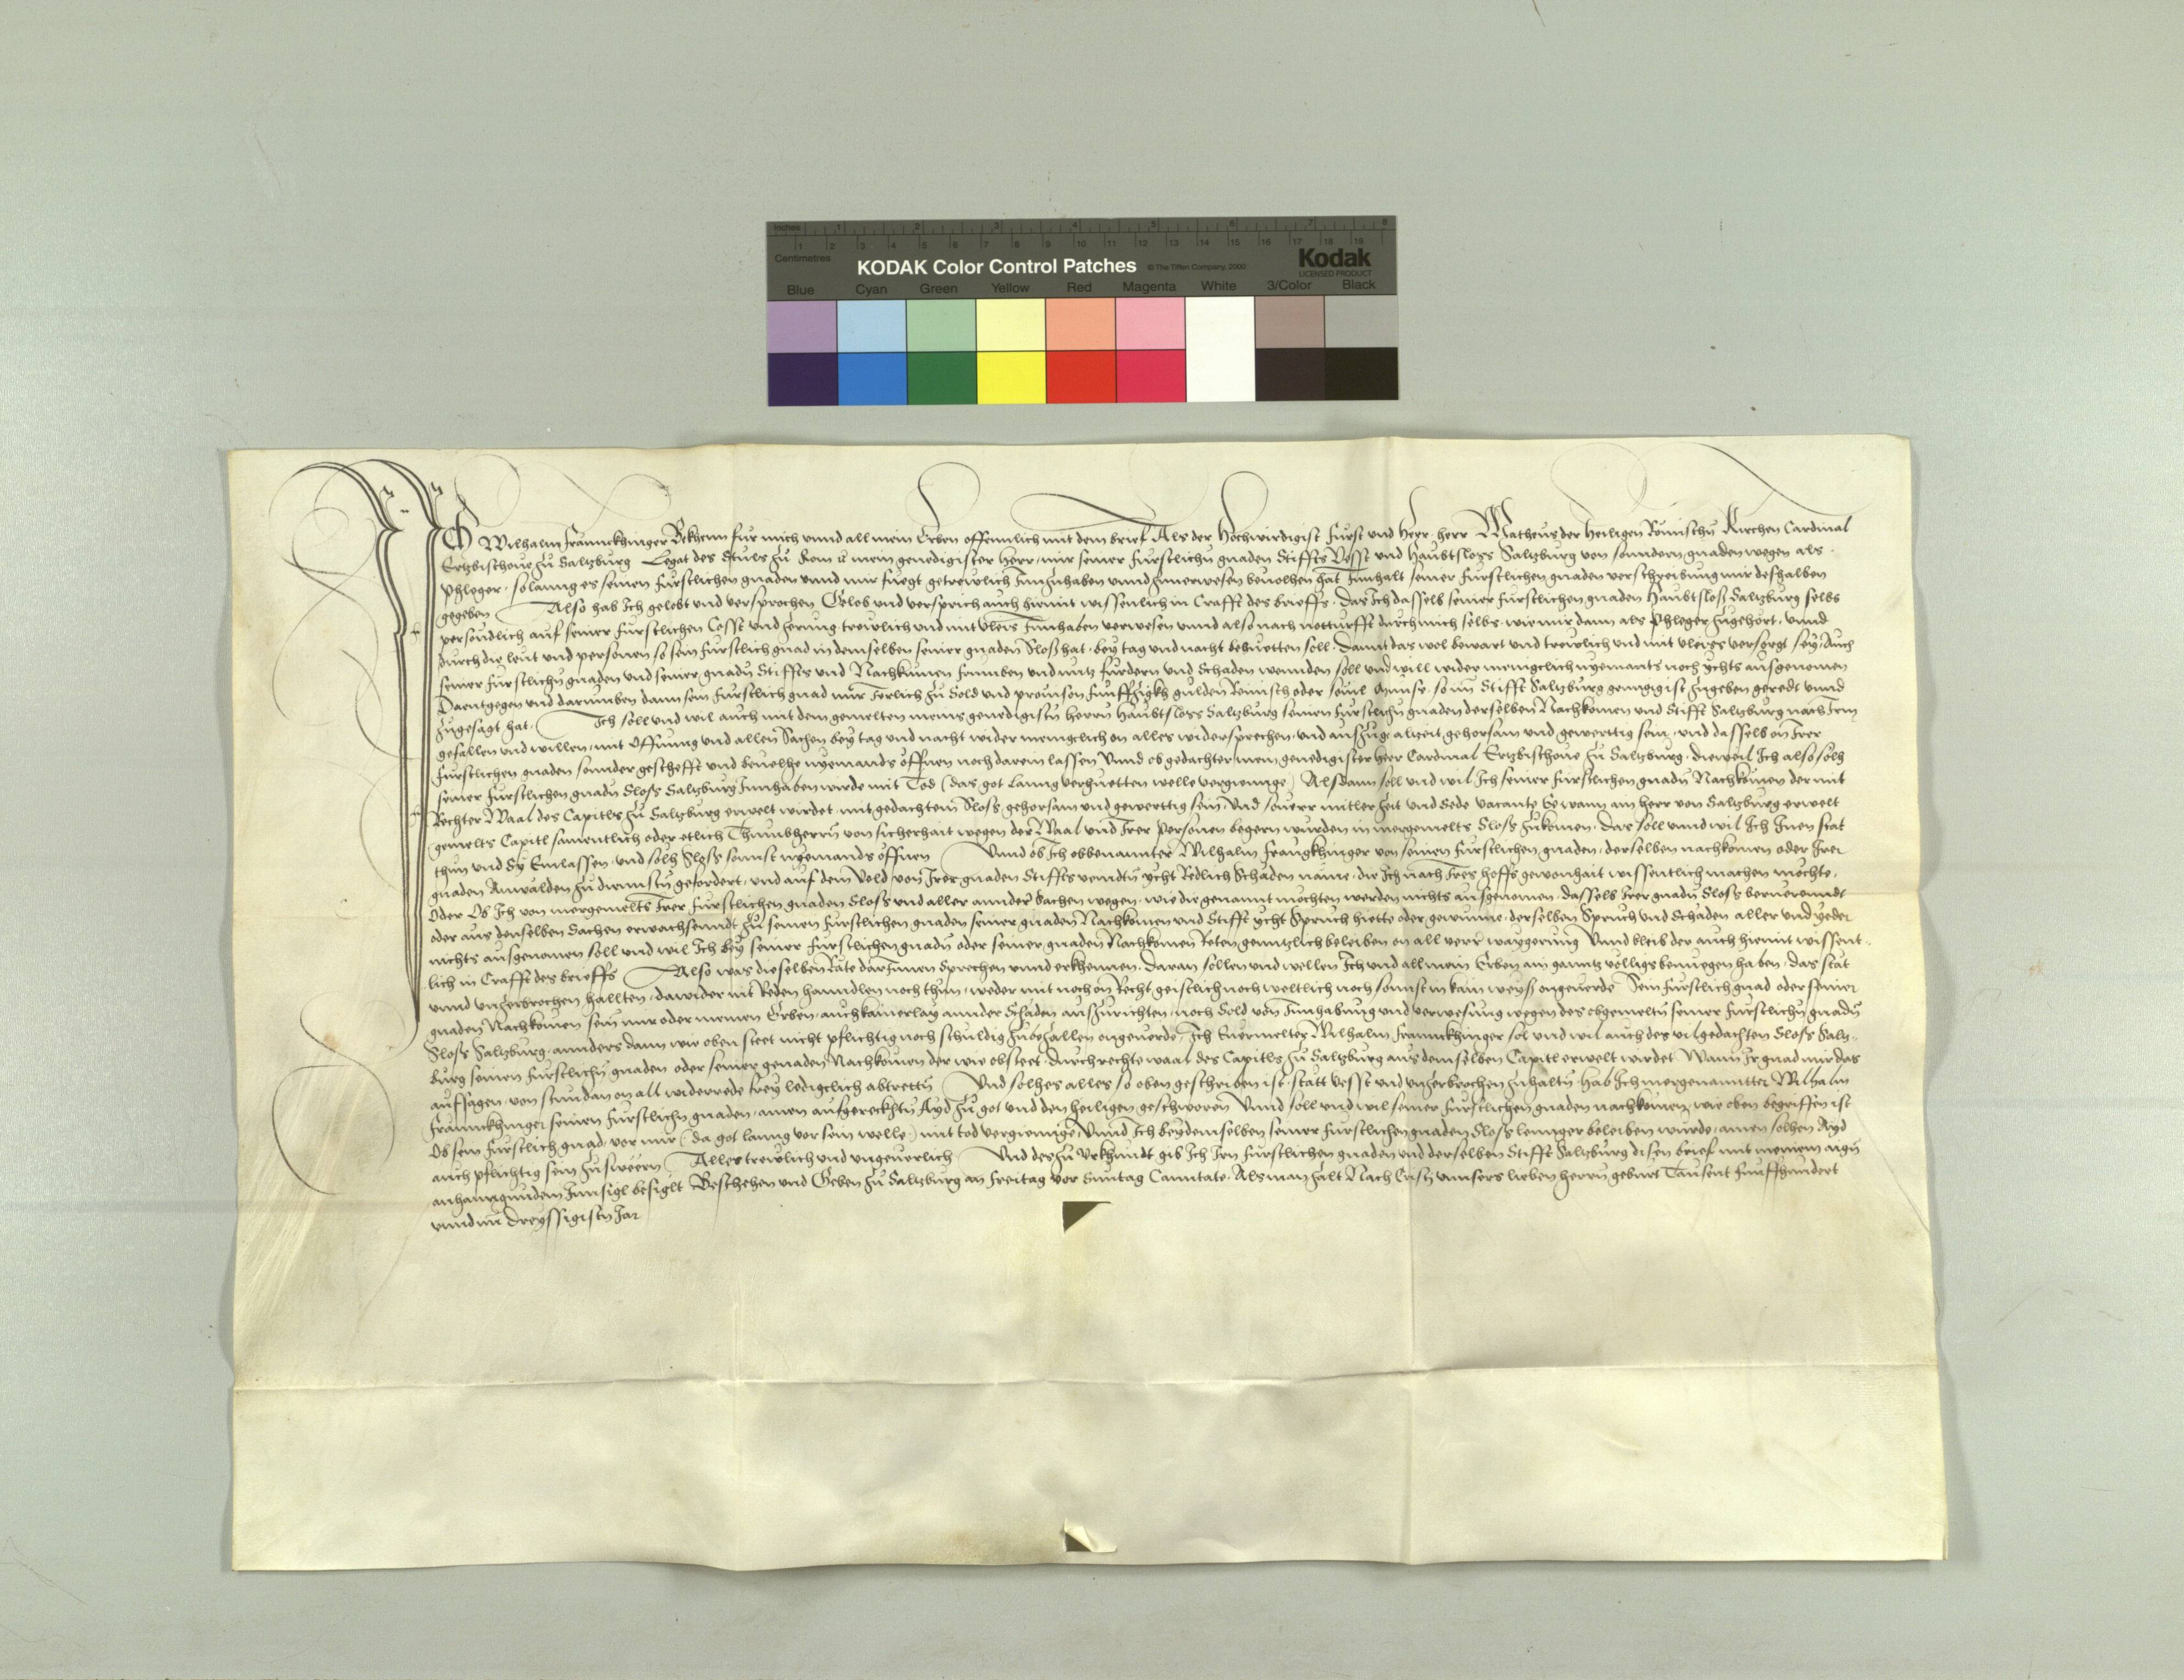 Inches 1 2 3 4 5 6 7 8
1 2 3 4 5 6 7 8 9 10 11 12 13 14 15 16 17 18 19
Centimetres
KODAK Color Control Patches © The Tiffen Company, 2000 Kodak
LICENSED PRODUCT
Blue Cyan Green Yellow Red Magenta White 3/Color Black
ICH Wilhalm Frannckhinger Bekhenn fur mich unnd all mein Erben offennlich mit dem brief Als der Hochwirdigist Furst und Herr herr Matheus der Heiligen Römischn Kirchen Cardinal
Ertzbischove zu Saltzburg Legat des Stuls zu Rom mein genedigister Herr, mir seiner Furstlichn gnaden Stiffts Vesst und Haubtsloss Saltzburg von sonndern gnaden wegen als
Phleger, solanng es seinen Furstlichen gnaden unnd mir fuegt getrewlich Innzuhaben unnd zuuerwesen beuolhen hat Innhalt seiner Furstlichen gnaden verschreibung mir deshalben
gegeben Also hab Ich gelobt und versprochen Gelob und versprich auch hiemit wissenlich in Crafft des brieffs, das Ich dasselb seiner Furstlichen gnaden Haubtsloß Saltzburg selbs
persondlich auf seiner Furstlichen Cosst und zerung trewlich und mit vleis Innhaben verwesen unnd also nach notturfft durch mich selbs, wie mir dann als Phleger zugehört, unnd
durch die leut und personen so sein furstlich gnad in demselben seiner gnaden Sloß hat, bey tag und nacht behuetten soll, damit das wol bewart und trewlich und mit vleiss versorgt sey, Auch
seiner Furstlichn gnaden und seiner gnadn Stiffts und Nachkumen frumben und nutz furdern und schaden wennden soll und will wider menigclich nyemants noch ychts ausgenomen
Daentgegen und darumben dann sein Furstlich gnad mir Jerlich zu Sold und prouison Funffzigkh gulden Reinisch oder souil Munss, so im Stifft Saltzburg genngig ist zugeben geredt unnd
zugesagt hat. Ich soll und wil auch mit dem gemelten meins genedigistn herrn Haubtsloss Saltzburg seinen Furstlichn gnaden derselben Nachkomen und Stifft Saltzburg nach Irm
gefallen und willen, mit Offnung und allen Sachen bey tag und nacht wider menigclich on alles widersprechen, und auszug altzeit gehorsam und gewerttig sein, und dasselb on Irer
Furstlichen gnaden sonnder gescheft und beuelhe nyemands öffnen noch darein lassen Unnd ob gedachter mein genedigister herr Cardinal Ertzbischove zu Saltzburg, dieweil Ich also solh
seiner Furstlichen gnadn Sloss Saltzburg Innhaben wirde mit Tod (das got lanng verhuetten welle) vergienng, Alsdann soll und wil Ich seiner Furstlichen gnadn Nachkomen der mit
Rechter Waal des Capitls zu Saltzburg erwelt wirdet, mit gedachtem Sloß gehorsam und gewerttig sein Und souerr mitler zeit und Sede vacante Ee wann ain herr von Saltzburg erwelt
gemelts Capitl samentlich oder etlich Thumbherrn von sicherhait wegen der Waal und Irer Personen begern wurden in mergemelts Sloss zukomen, das soll unnd wil Ich Inen stat
thun und Sy Einlassen, und solh Sloss sonnst nyemands öffnen Unnd ob Ich obbenannter Wilhalm Frangkhinger von seinen Furstlichen gnaden, derselben nachkomen oder Irer
gnaden Anwalden zu diennstn gefordert, und auf dem Veld von Irer gnaden Stiffts veindtn ycht Redlich Schäden näme, die Ich nach Ires hoffs gewonhait wissentlich machen möchte,
Oder Ob Ich von mergemelts Irer Furstlichen gnaden Sloss und aller annder Sachen wegen, wie die genannt möchten werden nichts ausgenomen, dasselb Irer gnadn Sloss beruerenndt
oder aus denselben Sachen erwachsenndt zu seinen Furstlichen gnaden seiner gnaden Nachkomen und Stifft ycht Spruch hiette oder gewunne, derselben Spruch und Schäden aller und yeder
nichts ausgenomen soll und wil Ich bey seiner Furstlichen gnadn oder seiner gnaden Nachkomen Reten genntzlich beleiben on all verr waygerung Unnd bleib der auch hiemit wissent-
lich in Crafft des brieffs Also was dieselben Räte darInnen Sprechen unnd erkhennen, daran sollen und wellen Ich und all mein Erben ain ganntz völligs benuegen haben, das stat
unnd unzerbrochen hallten, dawider nit Reden hanndlen noch thun, weder mit noch on Recht, geistlich noch weltlich noch sonnst in kain weys ongeuerde Sein furstlich gnad oder seiner
gnaden Nachkomen sein mir oder meinen Erben auch kainerlay annder Schäden auszurichten, noch Sold von Innhabung und verwesung wegen des obgemeltn seiner Furstlichn gnadn
Sloss Saltzburg, annders dann wie oben steet nicht pflichtig noch schuldig zubezallen ongeuerde, Ich Euermelter Wilhalm Frannckhinger sol und wil auch des vilgedachten Sloss Saltz-
burg seinen Furstlichn gnaden oder seiner genaden Nachkomen der wie obsteet, durch rechte waal des Capitls zu Saltzburg aus demselben Capitl erwelt wirdet Wann Ir gnad mir das
aufsagen, von stundan on all widerrede frey ledigclich abtrettn Und solhes alles so oben geschriben ist, statt vesst und unzerbrochen zuhaltn, hab Ich mergenannter Wilhalm
Frannckhinger seinen Furstlichn gnaden, ainen aufgereckhtn Ayd zu got und den heiligen geschworen Unnd soll und wil seiner Furstlichen gnaden nachkomen, wie oben begriffen ist
Ob sein Furstlich gnad, vor mir (da got lanng vor sein welle) mit tod vergiennge, Unnd Ich bey demselben seiner furstlichen gnaden Sloss lennger beleiben wurde, ainen solhen Ayd
auch pflichtig sein zusweern Alles trewlich und ungeuerlich Und des zu Urkhundt gib Ich Irn Furstlichen gnaden und derselben Stifft Saltzburg disen brief mit meinem aign
anhanngundem Innsigl besiglt Beschehen und Geben zu Saltzburg an Freitag vor Sunntag Canntate, Als man zalt Nach Cristj unnsers lieben herrn geburt Tausent Funffhundert
unnd im Dreyssigistn Jar